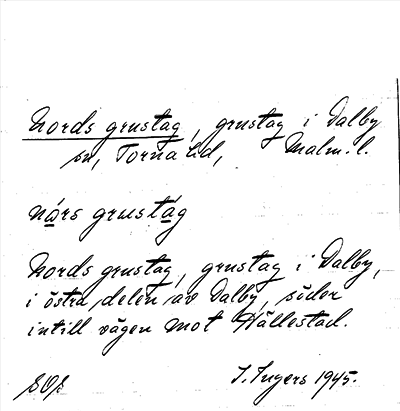 Nords grustag, grustag i Dalby
sn, Torna hd, Malm. l.
nårs grustág
Nords grustag, grustag i Dalby,
i östra delen av Dalby, söder
intill vägen mot Hällestad.
I. Ingers 1945.